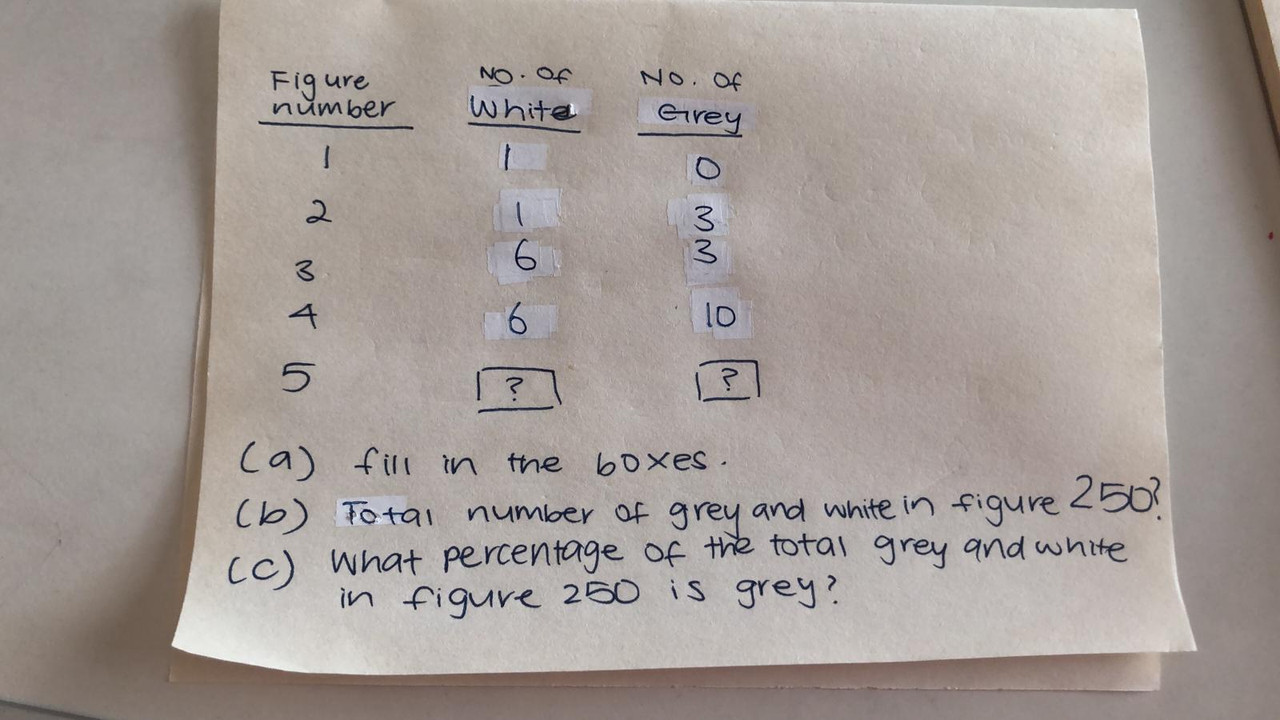 Figure number NO. Of White No. Of Grey
1 1 0
2 1 3
3 6 3
4 6 10
5 ? ?
(a) fill in the boxes.
(b) Total number of grey and white in figure 250?
(c) What percentage of the total grey and white
in figure 250 is grey?